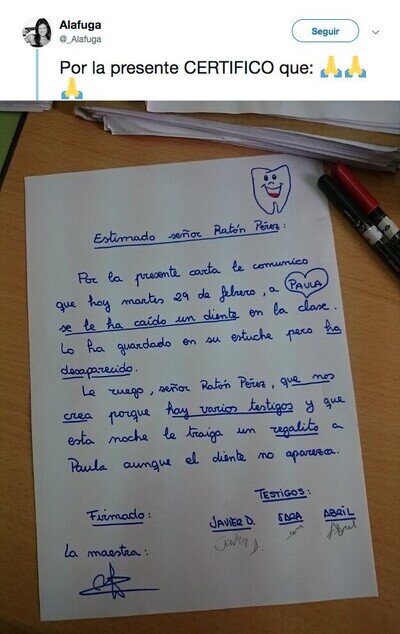 Alafuga
@_Alafuga
Seguir
Por la presente CERTIFICO que: 🙏🙏
🙏
Estimado señor Ratón Pérez:
Por la presente carta le comunico
que hoy martes 29 de febrero, a PAULA
se le ha caído un diente en la clase.
Lo ha guardado en su estuche pero ha
desaparecido.
Le ruego, señor Ratón Pérez, que nos
crea porque hay varios testigos y que
esta noche le traiga un regalito a
Paula aunque el diente no aparezca.
TESTIGOS:
Firmado: JAVIER D. SARA ABRIL
Javier D. Abril
La maestra: